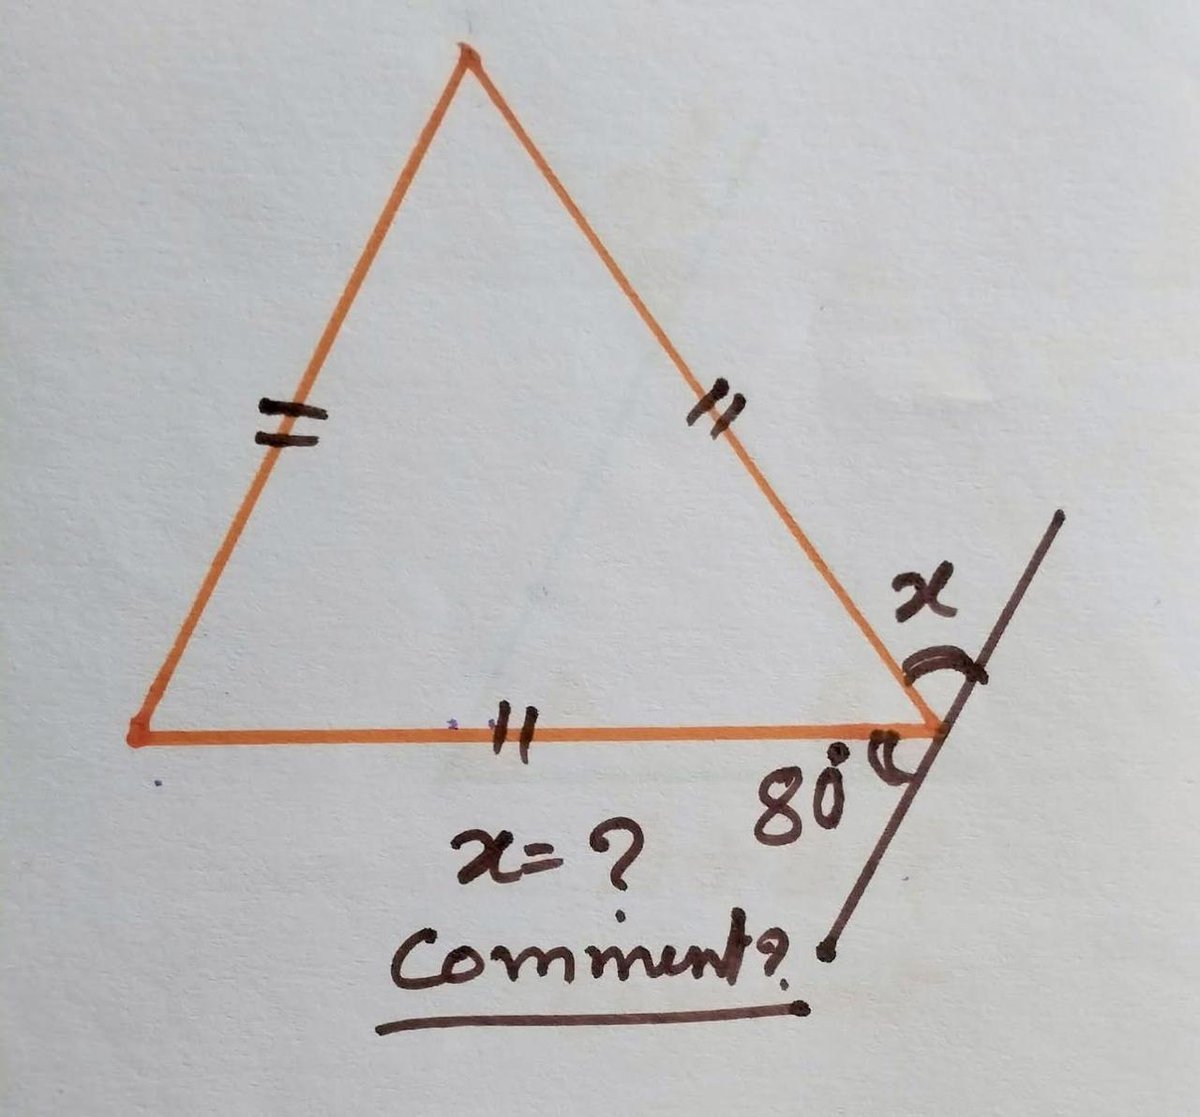 x
80°
x = ?
Comment?